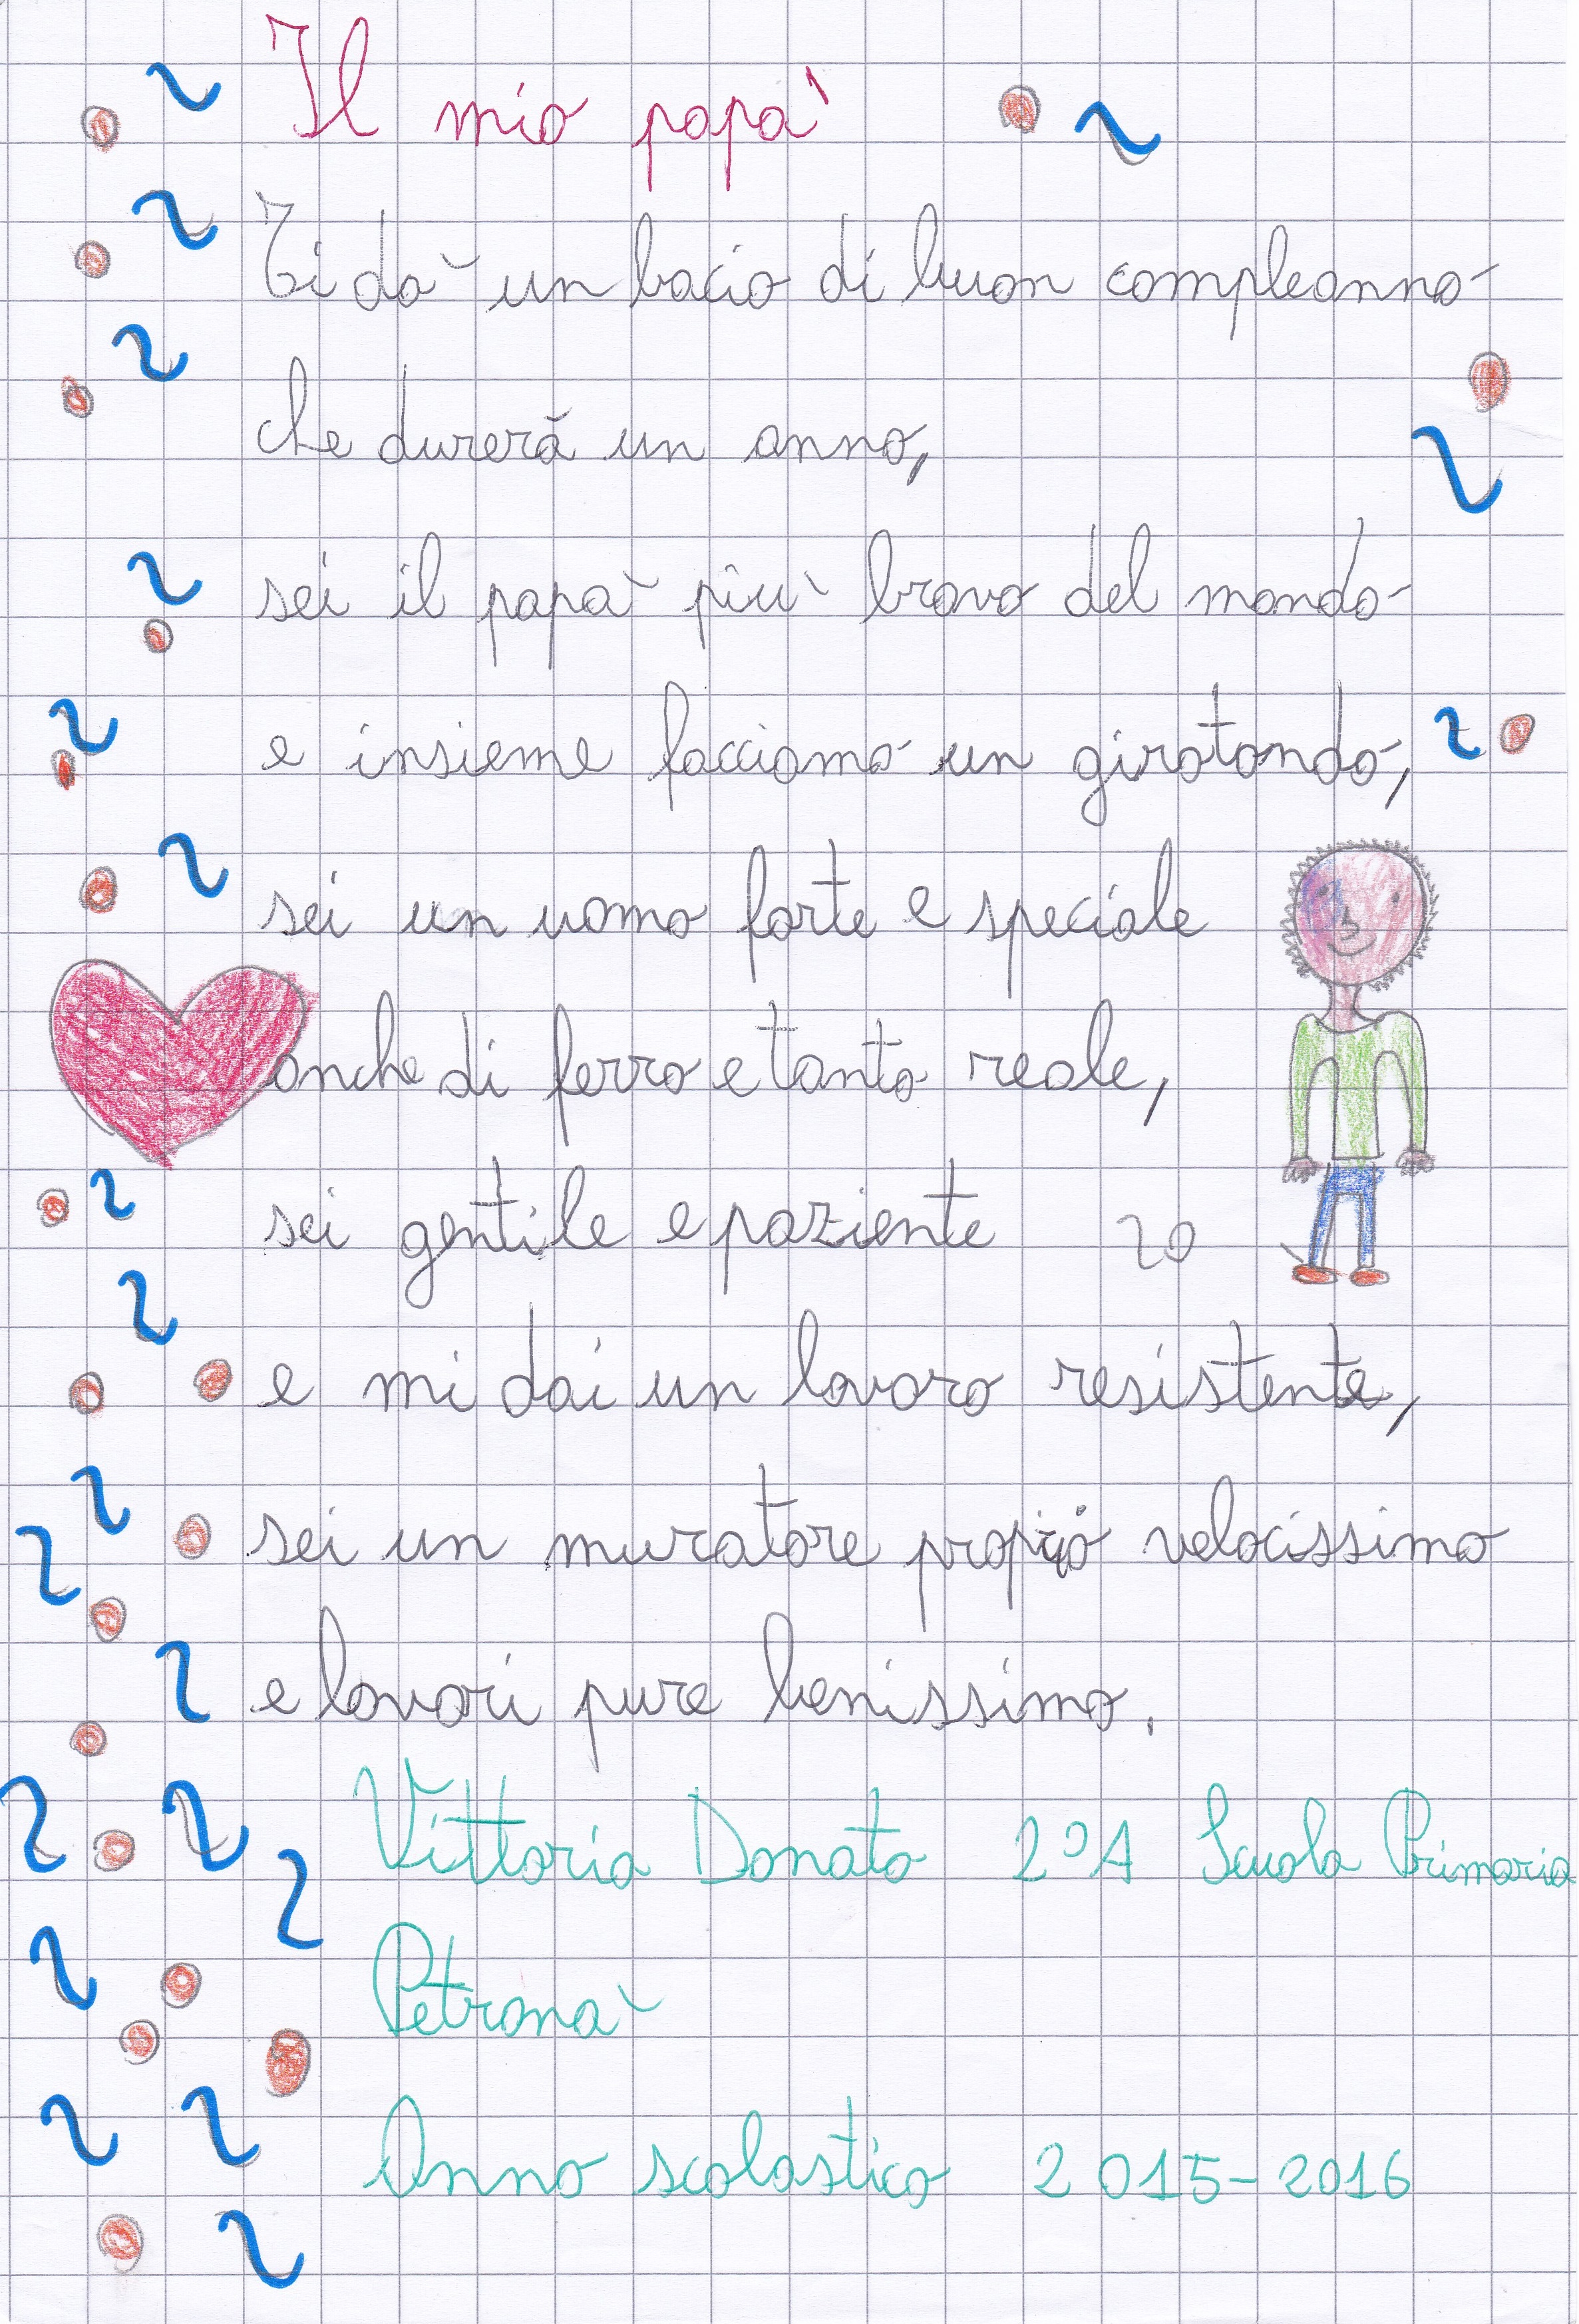 Il mio papà
Ti dò un bacio di buon compleanno
che durerà un anno,
sei il papà più bravo del mondo
e insieme facciamo un girotondo,
sei un uomo forte e speciale
anche di ferro e tanto reale,
sei gentile e paziente
20
e mi dai un lavoro resistente,
sei un muratore proprio velocissimo
e lavori pure benissimo.
Vittoria Donato 2ºA Scuola Primaria
Petronà
Anno scolastico 2015-2016